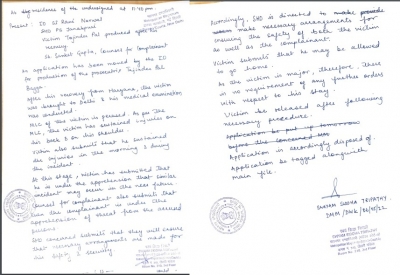 At residence of the undersigned at 11:40 pm.
Present: IO SI Ravi Narwal
SHO PS Janakpuri
Victim Tajinder Pal produced after his
recovery
Sh. Sanket Gupta, Counsel for Complainant
An application has been moved by the IO
for production of the prosecutrix Tajinder Pal
Bagga.
After his recovery from Haryana, the victim
was brought to Delhi & his medical examination
was conducted.
MLC of the victim is perused. As per the
MLC, the victim has sustained injuries on
his back & on his shoulder.
Victim also submits that he sustained
the injuries in the morning & during
the incident.
At this stage, victim has submitted that
he is under the apprehension that similar
incident may occur in the near future.
Counsel for complainant also submits that
even the complainant is under
apprehension of threat from the accused
persons.
SHO concerned submits that they will ensure
that necessary arrangements are made for
his safety & security
Accordingly, SHO is directed to
make necessary arrangements for
ensuring the safety of both the victim
as well as the complainant.
Victim submits that he may be allowed
to go home.
As the victim is major, therefore, there
is no requirement of any further orders
with respect to his stay.
Victim be released after following
necessary procedure.
Application be put up tomorrow
before the concerned
Application is accordingly disposed of.
Application be tagged alongwith
main file.
SWAYAM SIDDHA TRIPATHY